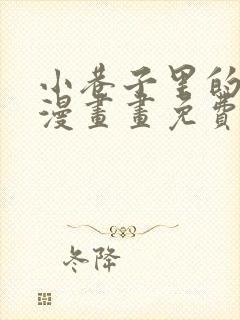 小巷子里的
漫畫畫免費
冬降